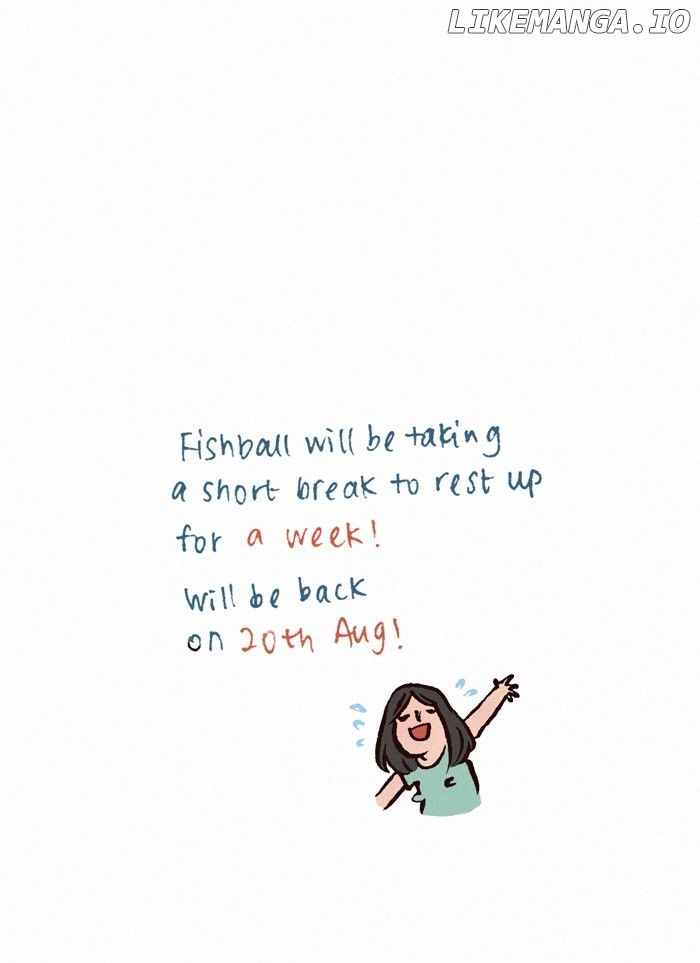 LIKEMANGA.IO
Fishball will be taking
a short break to rest up
for a week!
Will be back
on 20th Aug!